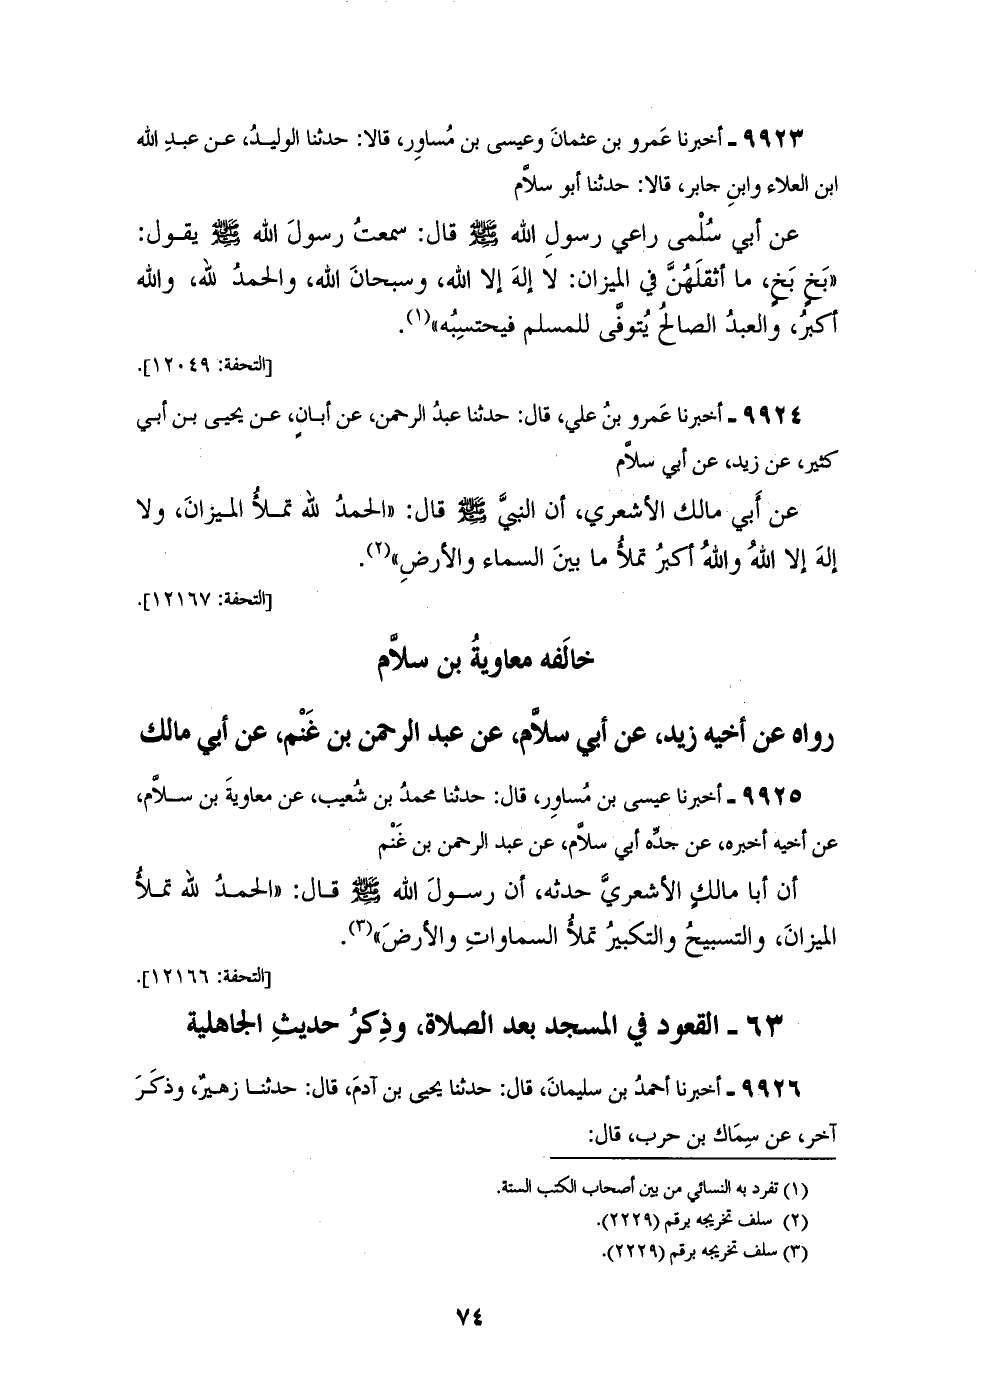 ٩٩٢٣ ـ أخبرنا عَمرو بن عثمانَ وعيسى بن مُساوِر، قالا: حدثنا الوليـدُ، عـن عبـدِ الله
ابن العلاء وابنِ جابر، قالا: حدثنا أبو سلاَّم
عن أبي سُلْمى راعي رسولِ الله ﷺ قال: سمعتُ رسولَ الله ﷺ يقـول:
«بَخٍ بَخٍ، ما أثقلَهُنَّ في الميزان: لا إلهَ إلا الله، وسبحانَ الله، والحمدُ لله، والله
أكبرُ، والعبدُ الصالحُ يُتوفَّى للمسلم فيحتسِبُه»(١).
[التحفة: ١٢٠٤٩].
٩٩٢٤ ـ أخبرنا عَمرو بنُ علي، قال: حدثنا عبدُ الرحمن، عن أبـانٍ، عـن يحيـى بـن أبـي
كثير، عن زيد، عن أبي سلاَّم
عن أَبي مالك الأشعري، أن النبيَّ ﷺ قال: «الحمدُ لله تمـلأُ المـيزانَ، ولا
إلهَ إلا اللهُ واللهُ أكبرُ تملأُ ما بينَ السماء والأرضِ»(٢).
[التحفة: ١٢١٦٧].
خالَفه معاويةُ بن سلاَّم
رواه عن أخيه زيد، عن أبي سلاَّم، عن عبد الرحمن بن غَنْم، عن أبي مالك
٩٩٢٥ ـ أخبرنا عيسى بن مُساوِر، قال: حدثنا محمدُ بن شُعيب، عن معاويةَ بن سـلاَّم،
عن أخيه أخبره، عن جدِّه أبي سلاَّم، عن عبد الرحمن بن غَنْم
أن أبا مالكٍ الأشعريَّ حدثه، أن رسـولَ الله ﷺ قـال: «الحمـدُ لله تمـلأُ
الميزانَ، والتسبيحُ والتكبيرُ تملأُ السماواتِ والأرضَ»(٣).
[التحفة: ١٢١٦٦].
٦٣ ـ القعود في المسجد بعد الصلاة، وذِكرُ حديثِ الجاهلية
٩٩٢٦ ـ أخبرنا أحمدُ بن سليمانَ، قال: حدثنا يحيى بن آدمَ، قال: حدثنـا زهـيرٌ، وذكَـرَ
آخر، عن سِمَاك بن حرب، قال:
(١) تفرد به النسائي من بين أصحاب الكتب الستة.
(٢) سلف تخريجه برقم (٢٢٢٩).
(٣) سلف تخريجه برقم (٢٢٢٩).
٧٤